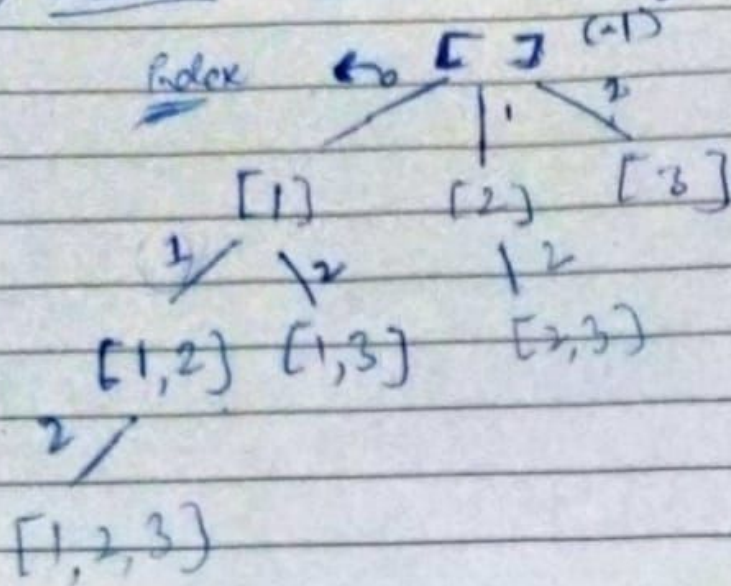 Index ← 0 [ ] (-1)
1 2
[1] [2] [3]
1 2 2
[1,2] [1,3] [2,3]
2
[1,2,3]